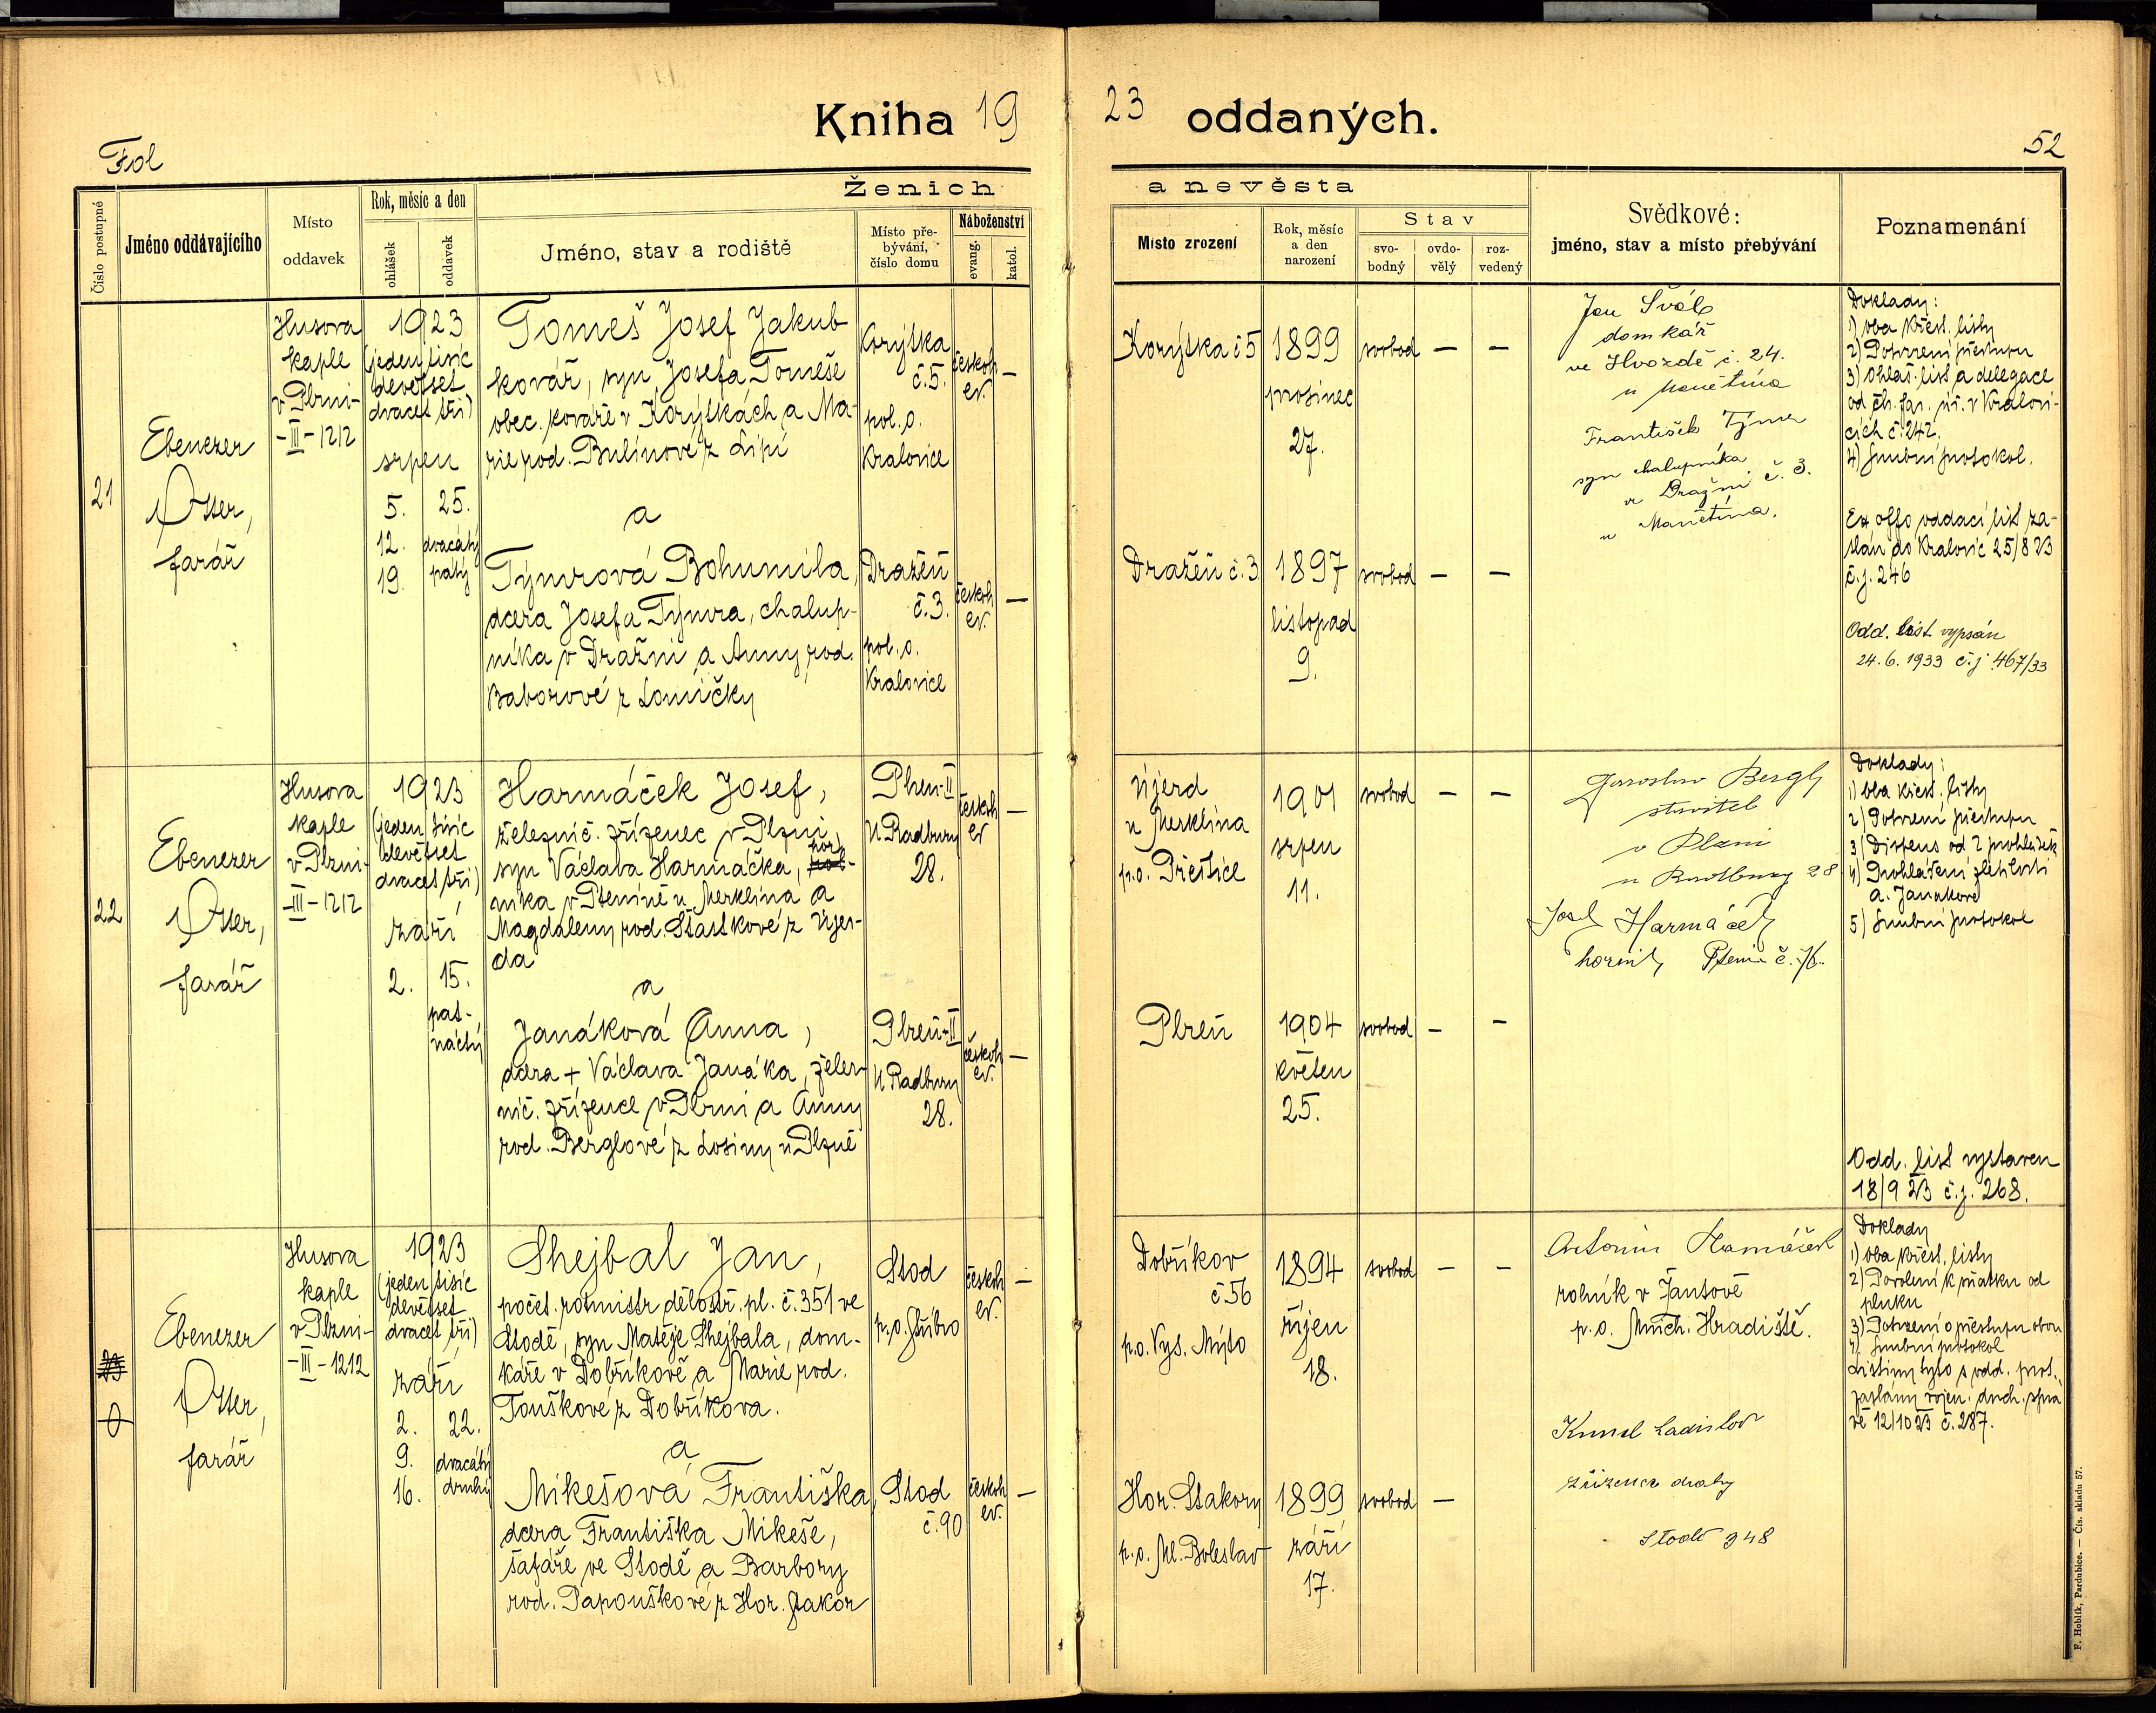 Kniha 1923 oddaných.
Fol
52
Číslo postupné
Jméno oddávajícího
Místo
oddavek
Rok, měsíc a den
ohlášek
oddavek
Ženich a nevěsta
Jméno, stav a rodiště
Místo pře-
bývání,
číslo domu
Náboženství
evang.
katol.
Místo zrození
Rok, měsíc
a den
narození
Stav
svo-
bodný
ovdo-
vělý
roz-
vedený
Svědkové:
jméno, stav a místo přebývání
Poznamenání
21
Ebenezer
Otter,
farář
Husova
kaple
v Plzni-
-III-1212
1923
(jeden tisíc
devětset
dvacet tři)
srpen
5.
12.
19.
25.
dvacátý
pátý
Tomeš Josef Jakub
kovář, syn Josefa Tomeše
obec. kováře v Korýtkách a Ma-
rie rod. Bulínové z Lipí
a
Týnrová Bohumila,
dcera Josefa Týnra, chalup-
níka v Dražni a Anny rod.
Baborové z Lomičky
Korýtka
č.5.
pol. o.
Kralovice
Dražeň
č.3.
pol. o.
Kralovice
českob
ev.
—
českob
ev.
—
Korýtka č 5
1899
prosinec
27.
svobod — —
Dražeň č. 3
1897
listopad
9.
svobod — —
Jan Šváb
domkář
ve Hvozdě č. 24.
u Manětína
František Týnr
syn chalupníka
v Dražni č. 3.
u Manětína.
Doklady:
1) oba křest. listy
2) Potvrzení přestupu
3) Ohlaš. list a delegace
od čb. far. úř. v Kralovi-
cích č. 242.
4) Snubní protokol.
Ex offo oddací list za-
slán do Kralovic 25/8 23
č.j. 246
Odd. list vypsán
24.6.1933 č.j. 467/33
22
Ebenezer
Otter,
farář
Husova
kaple
v Plzni-
-III-1212
1923
(jeden tisíc
devětset
dvacet tři)
září
2.
15.
pat-
náctý
Harmáček Josef,
železnič. zřízenec v Plzni,
syn Václava Harmáčka, hor-
níka v Ptenině u Merklína a
Magdaleny rod. Šťastkové z Újez-
da
a
Janáková Anna,
dcera + Václava Janáka, želez-
nič. zřízence v Plzni a Anny
rod. Berglové z Losiny u Plzně
Plzeň-II
U Radbuzy
28.
Plzeň-II
U Radbuzy
28.
českob
ev
—
českob
ev.
—
Újezd
u Merklína
p.o. Přeštice
1901
srpen
11.
svobod — —
Plzeň
1904
květen
25.
svobod — —
Jaroslav Bergl
stavitel
v Plzni
u Radbuzy 28
Josef Harmáček
horník Ptenin č. 76.
Doklady:
1) oba křest. listy
2) Potvrzení přestupu
3) Dispens od 2 prohlášek
4) Prohlášení zletilosti
A. Janákové
5) Snubní protokol
Odd. list vystaven
18/9 23 č.j. 268.
23
Ebenezer
Otter,
farář
Husova
kaple
v Plzni-
-III-1212
1923
(jeden tisíc
devětset
dvacet tři)
září
2.
9.
16.
22.
dvacátý
druhý
Shejbal Jan,
počet. rotmistr dělostř. pl. č. 351 ve
Stodě, syn Matěje Shejbala, dom-
káře v Dobříkově a Marie rod.
Touškové z Dobříkova.
a
Mikešová Františka,
dcera Františka Mikeše,
šafáře ve Stodě a Barbory
rod. Papouškové z Hor. Stakor
Stod
p.o. Stříbro
Stod
č. 90
českob
ev.
—
českob
ev.
—
Dobříkov
č. 56
p.o. Vys. Mýto
1894
říjen
18.
svobod — —
Hor. Stakory
p.o. Ml. Boleslav
1899
září
17.
svobod —
Antonín Hamáček
rolník v Jantově
p. o. Mnich. Hradiště.
Ladislav
zřízenec dráhy
Stod 348
Doklady
1) oba křest. listy
2) Povolení k sňatku od
pluku
3) Potvrzení o přestupu obou
4) Snubní protokol
Listiny tyto s odd. prot.
zaslány vojen. duch. sprá
vě 12/10 23 č. 287.
F. Hoblík, Pardubice. — Čís. skladu 57.